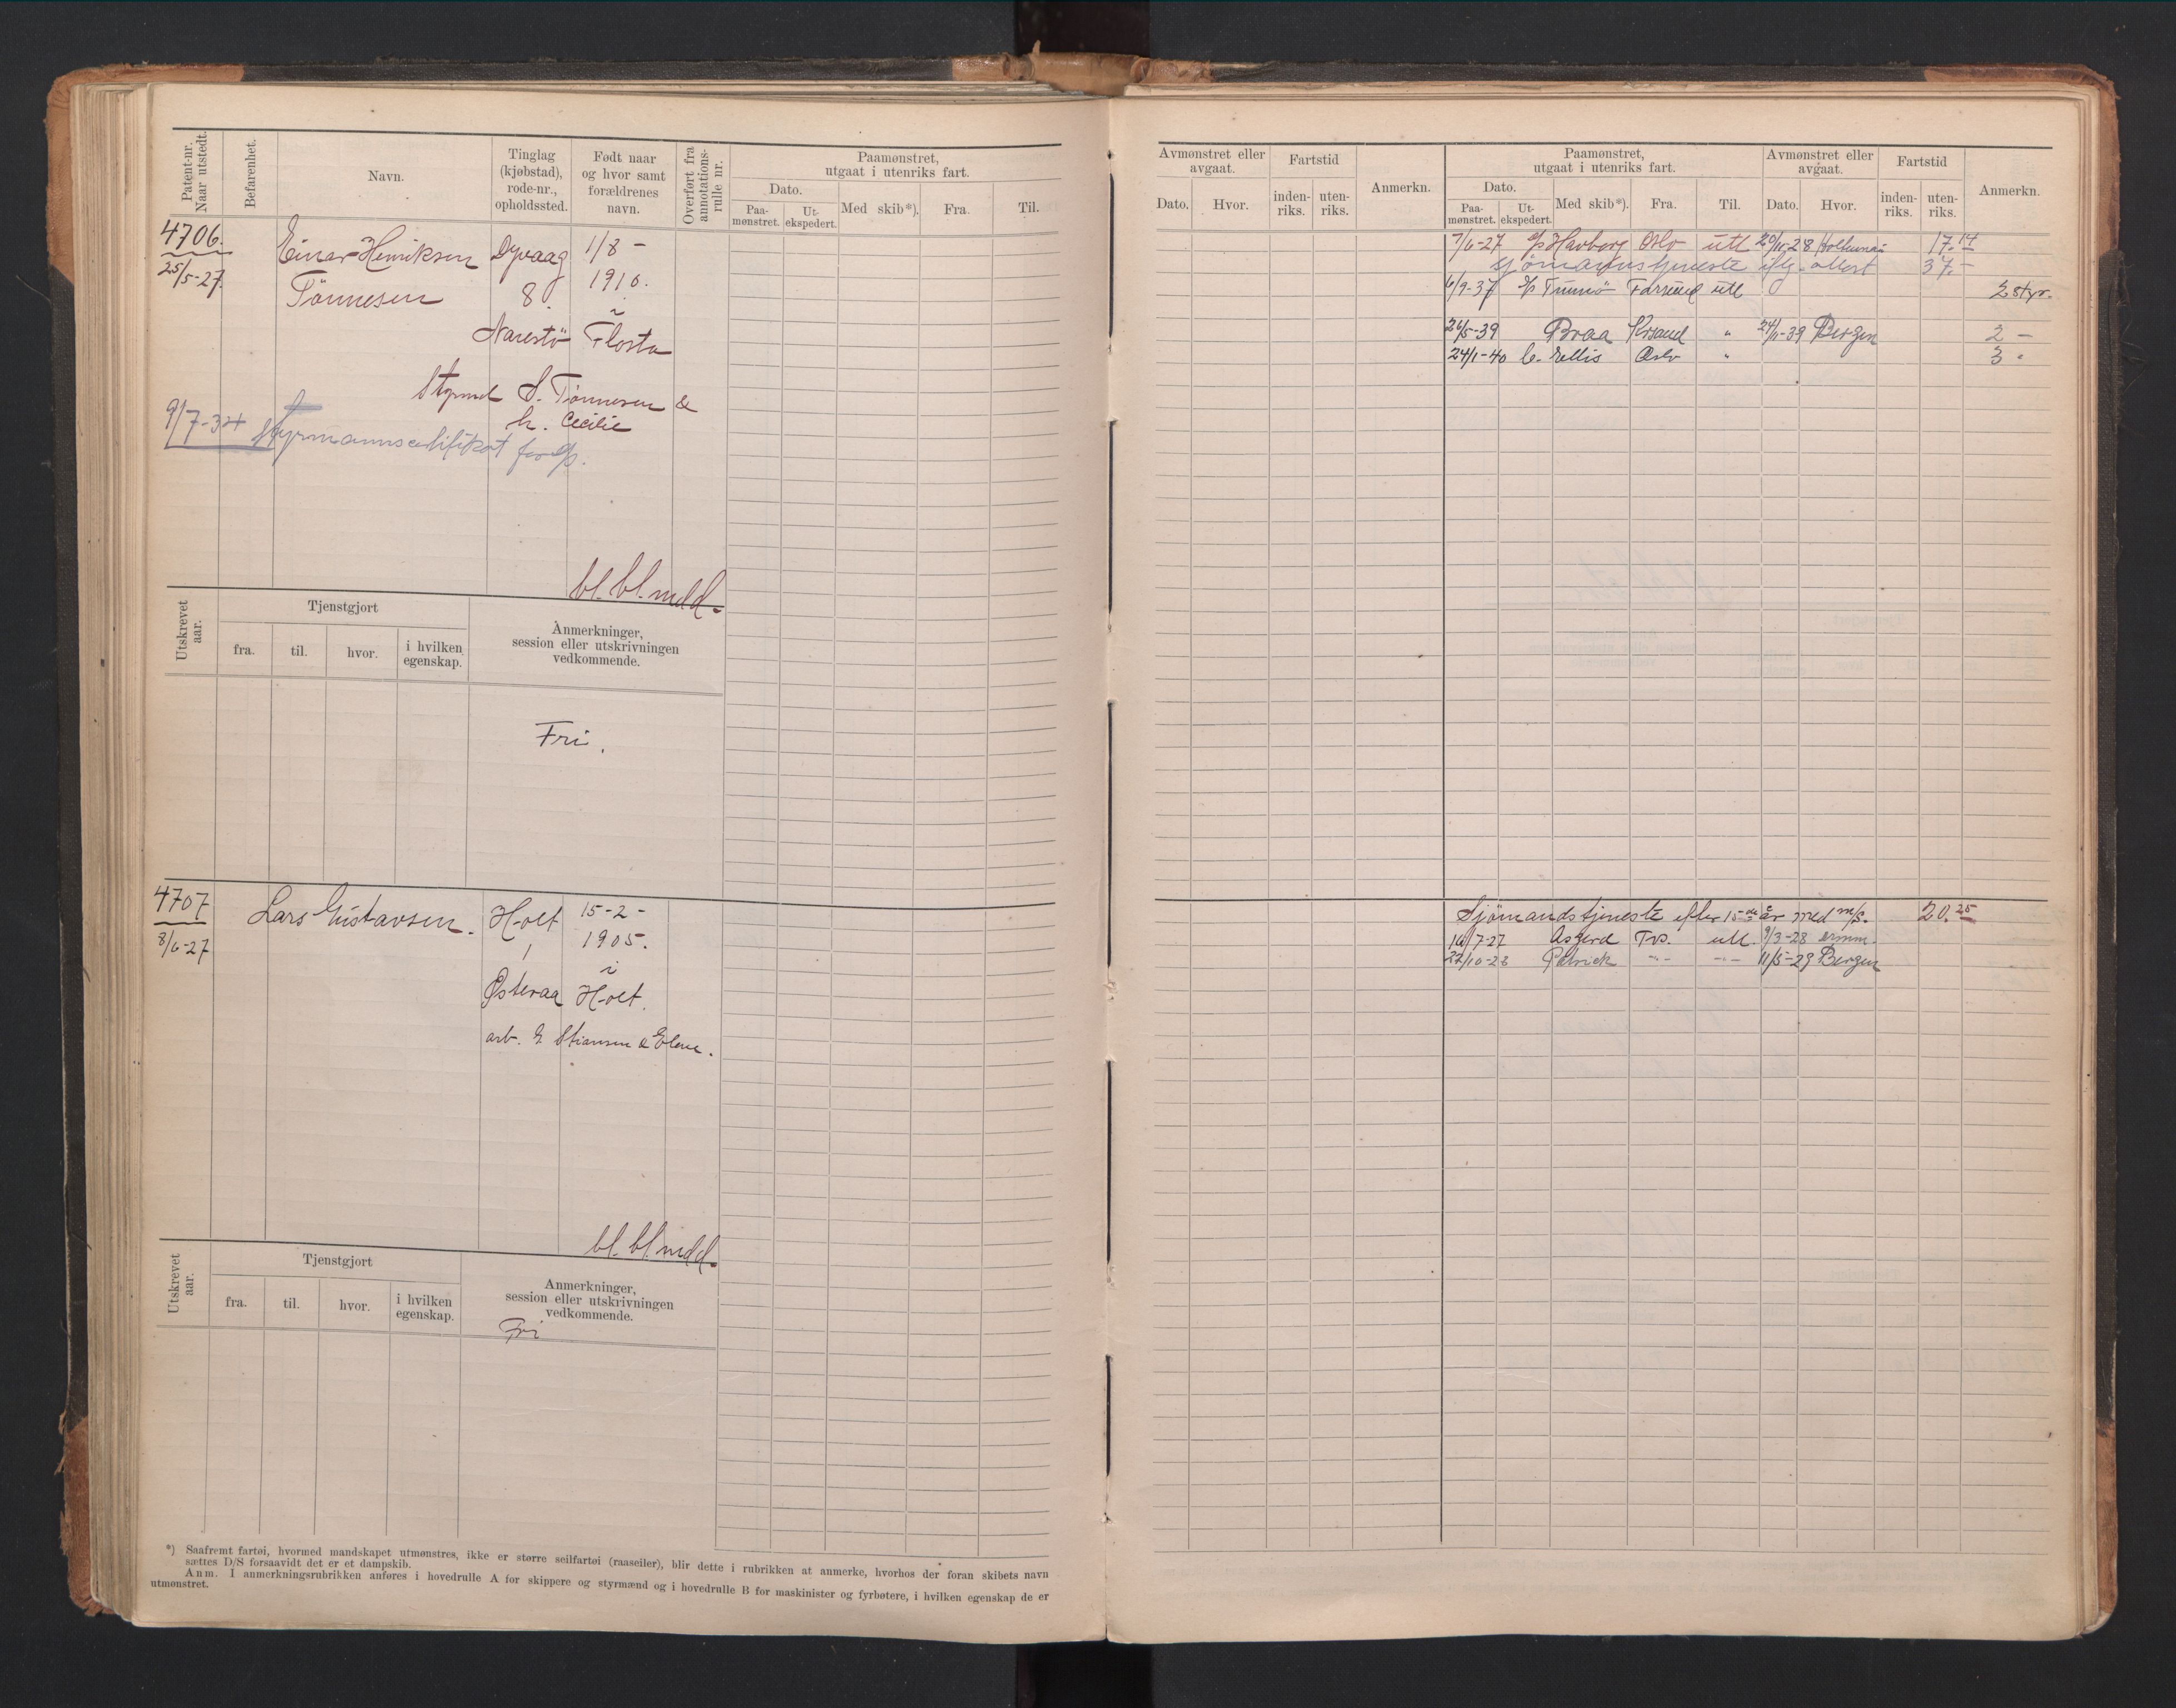 Patent-nr. Naar utstedt.
Befarenhet.
Navn.
Tinglag (kjøbstad), rode-nr., opholdssted.
Født naar og hvor samt forældrenes navn.
Overført fra annotations-rulle nr.
Paamønstret, utgaat i utenriks fart.
Dato.
Paa-mønstret.
Ut-ekspedert.
Med skib*).
Fra.
Til.
4706.
25/5-27
Einar Henriksen
Tönnesen
Dyvaag
8.
Narestö
1/8 -
1910.
i
Flosta
Styrmd S. Tönnesen &
h. Cecilie
9/7-34 styrmannsertifikat for d/s.
bl. bl. medd.
Utskrevet aar.
Tjenstgjort
fra.
til.
hvor.
i hvilken egenskap.
Anmerkninger, session eller utskrivningen vedkommende.
Fri.
4707
8/6-27
Lars Gustavsen.
Holt
1
Østeraa
15-2-
1905.
i
Holt.
arb. G. Stiansen & Elene.
bl. bl. medd.
Utskrevet aar.
Tjenstgjort
fra.
til.
hvor.
i hvilken egenskap.
Anmerkninger, session eller utskrivningen vedkommende.
Fri
*) Saafremt fartøi, hvormed mandskapet utmønstres, ikke er større seilfartøi (raaseiler), blir dette i rubrikken at anmerke, hvorhos der foran skibets navn
sættes D/S forsaavidt det er et dampskib.
Anm. I anmerkningsrubrikken anføres i hovedrulle A for skippere og styrmænd og i hovedrulle B for maskinister og fyrbøtere, i hvilken egenskap de er
utmønstret.
Avmønstret eller avgaat.
Dato.
Hvor.
Fartstid
inden-riks.
uten-riks.
Anmerkn.
Paamønstret, utgaat i utenriks fart.
Dato.
Paa-mønstret.
Ut-ekspedert.
Med skib*).
Fra.
Til.
Avmønstret eller avgaat.
Dato.
Hvor.
Fartstid
inden-riks.
uten-riks.
Anmerkn.
7/6-27 d/s Havborg Oslo utl 20/11-28 17.14
sjömannstjeneste iflg. attest 37.-
6/9-37 d/s Farsund utl 2 styr.
26/5-39 Braa Krsand " 24/11-39 Bergen 2 -
24/1-40 Oslo " 3 "
Sjömandstjeneste efter 15de år med m/s. 20.25
16/7-27 Asgerd Tvs. utl. 9/3-28
22/10-28 Patrick -"- -"- 11/5-29 Bergen